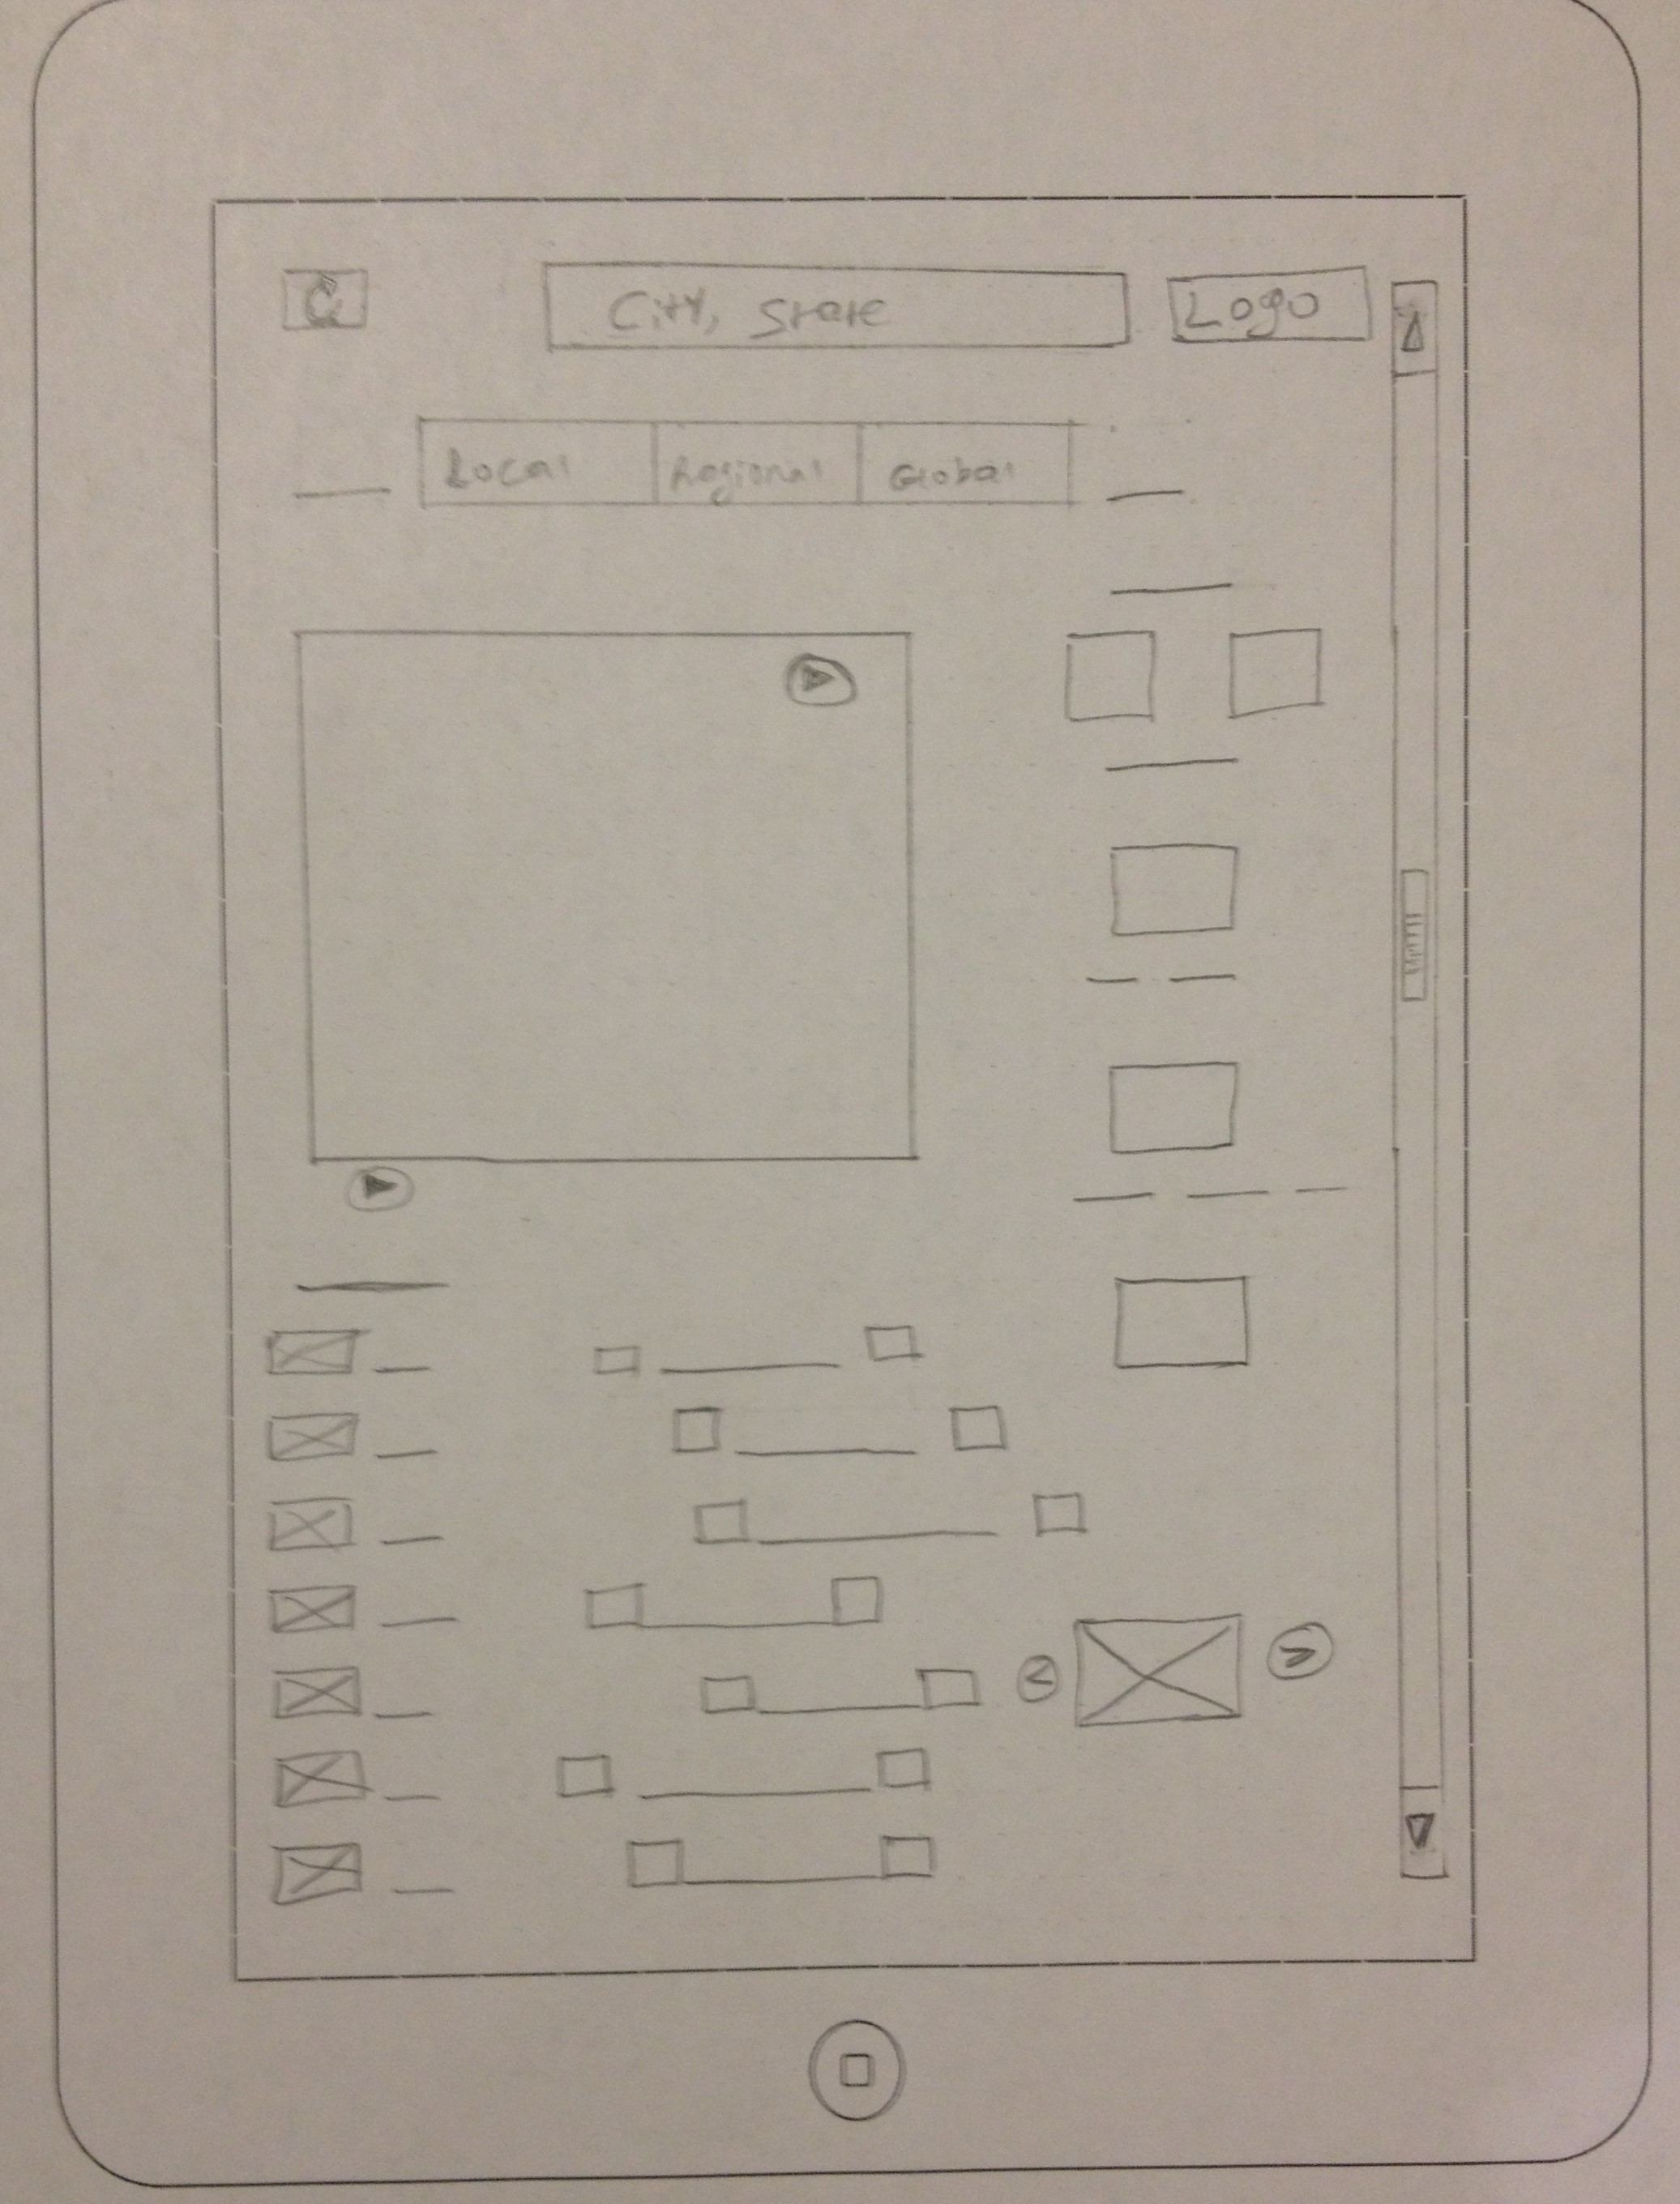 C
City, State
Logo
Local
Regional
Global
<
>